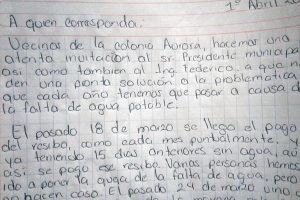 1° Abril 20
A quien corresponda:
Vecinos de la colonia Aurora, hacemos una
atenta invitación al sr. Presidente municipa
asi como tambien al Ing. Federico, a que n
den una pronta solución a la problematica
que cada año tenemos que pasar a causa d
la falta de agua potable.
El pasado 18 de marzo se llego el pago
del recibo, como cada mes puntualmente, y
ya teniendo 15 dias anteriores sin agua, au
asi se pago ese recibo. Varias personas hemo
ido a poner la queja de la falta de agua, pero
no hacen caso. El pasado 24 de marzo vino